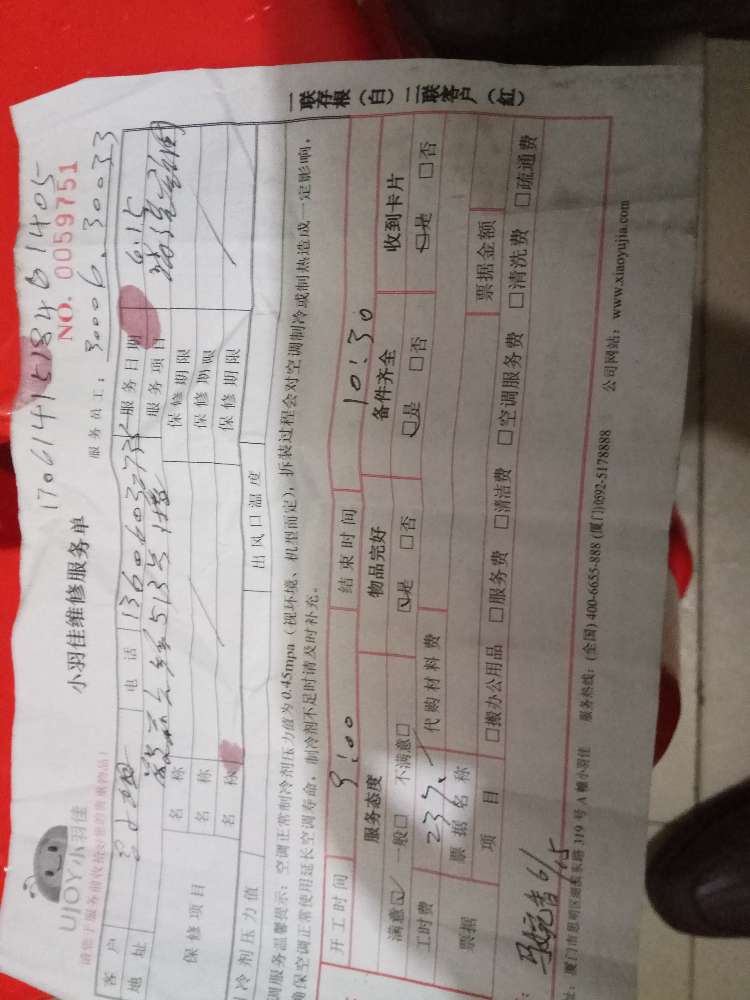 UJOY小羽佳
小羽佳维修服务单
1706141518461405
NO. 0059751
服务员工：30006.30033
客户
电话
服务日期
6.15
地址
服务项目
保修项目
名称
保修期限
名称
保修期限
名称
保修期限
冷剂压力值
出风口温度
调服务温馨提示：空调正常制冷剂压力值为0.45mpa（视环境、机型而定），拆装过程会对空调制冷或制热造成一定影响，
确保空调正常使用延长空调寿命，制冷剂不足时请及时补充。
开工时间
9:00
结束时间
10:30
服务态度
物品完好
备件齐全
收到卡片
满意☑ 一般□ 不满意□
☑是 □否
☑是 □否
☑是 □否
工时费
237.
代购材料费
票据
票据名称
票据金额
项目
□搬办公用品 □服务费 □清洁费 □空调服务费 □清洗费 □疏通费
6/15
厦门市思明区湖滨东路319号A幢小羽佳
服务热线：(全国) 400-6655-888 (厦门)0592-5178888
公司网站：www.xiaoyujia.com
一联存根（白）二联客户（红）